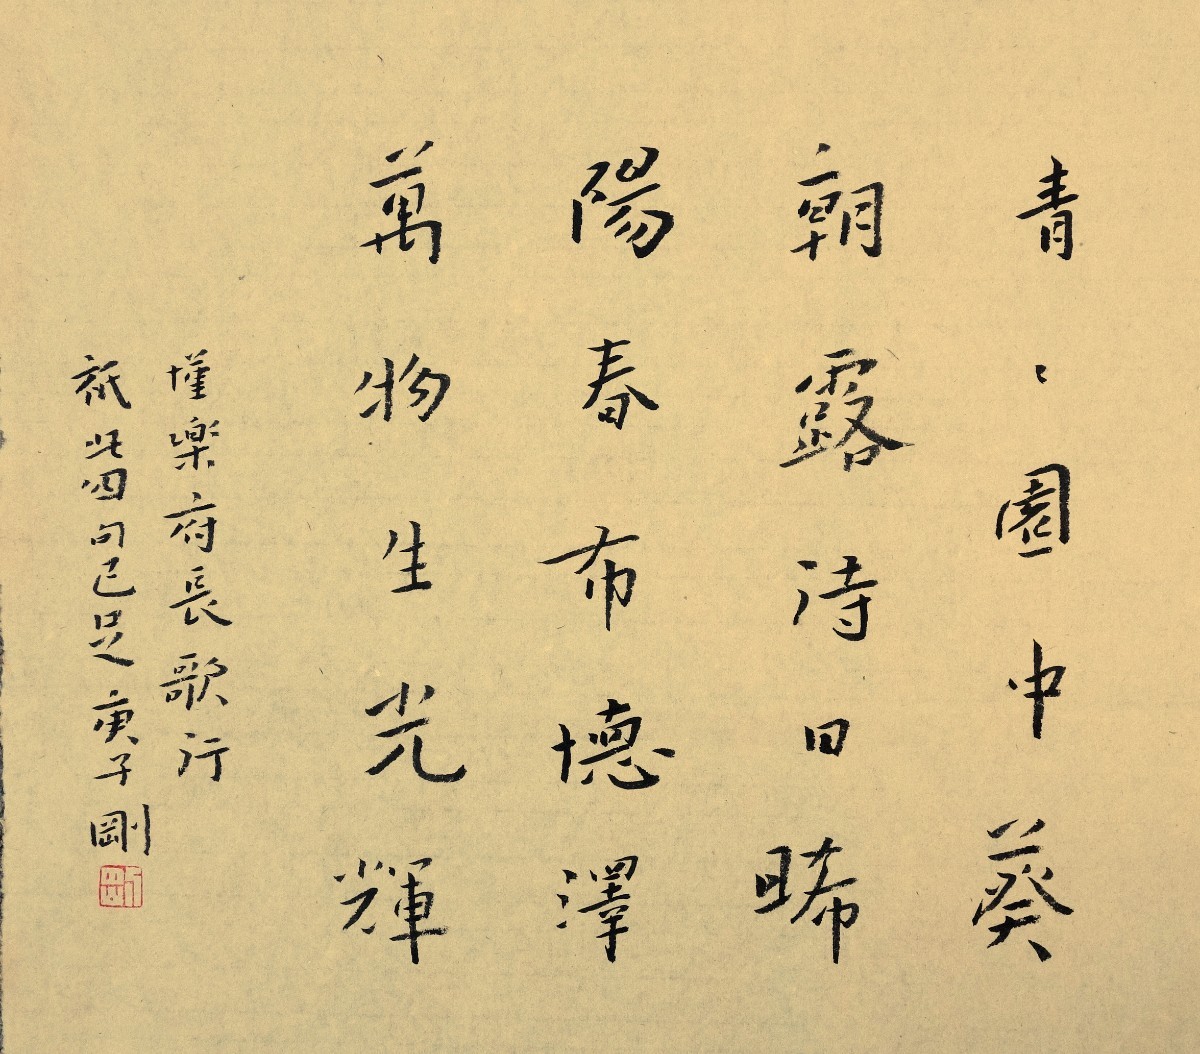 青〻園中葵
朝露待日晞
陽春布德澤
萬物生光輝
漢樂府長歌行
祇此四句已足 庚子 剛
剛